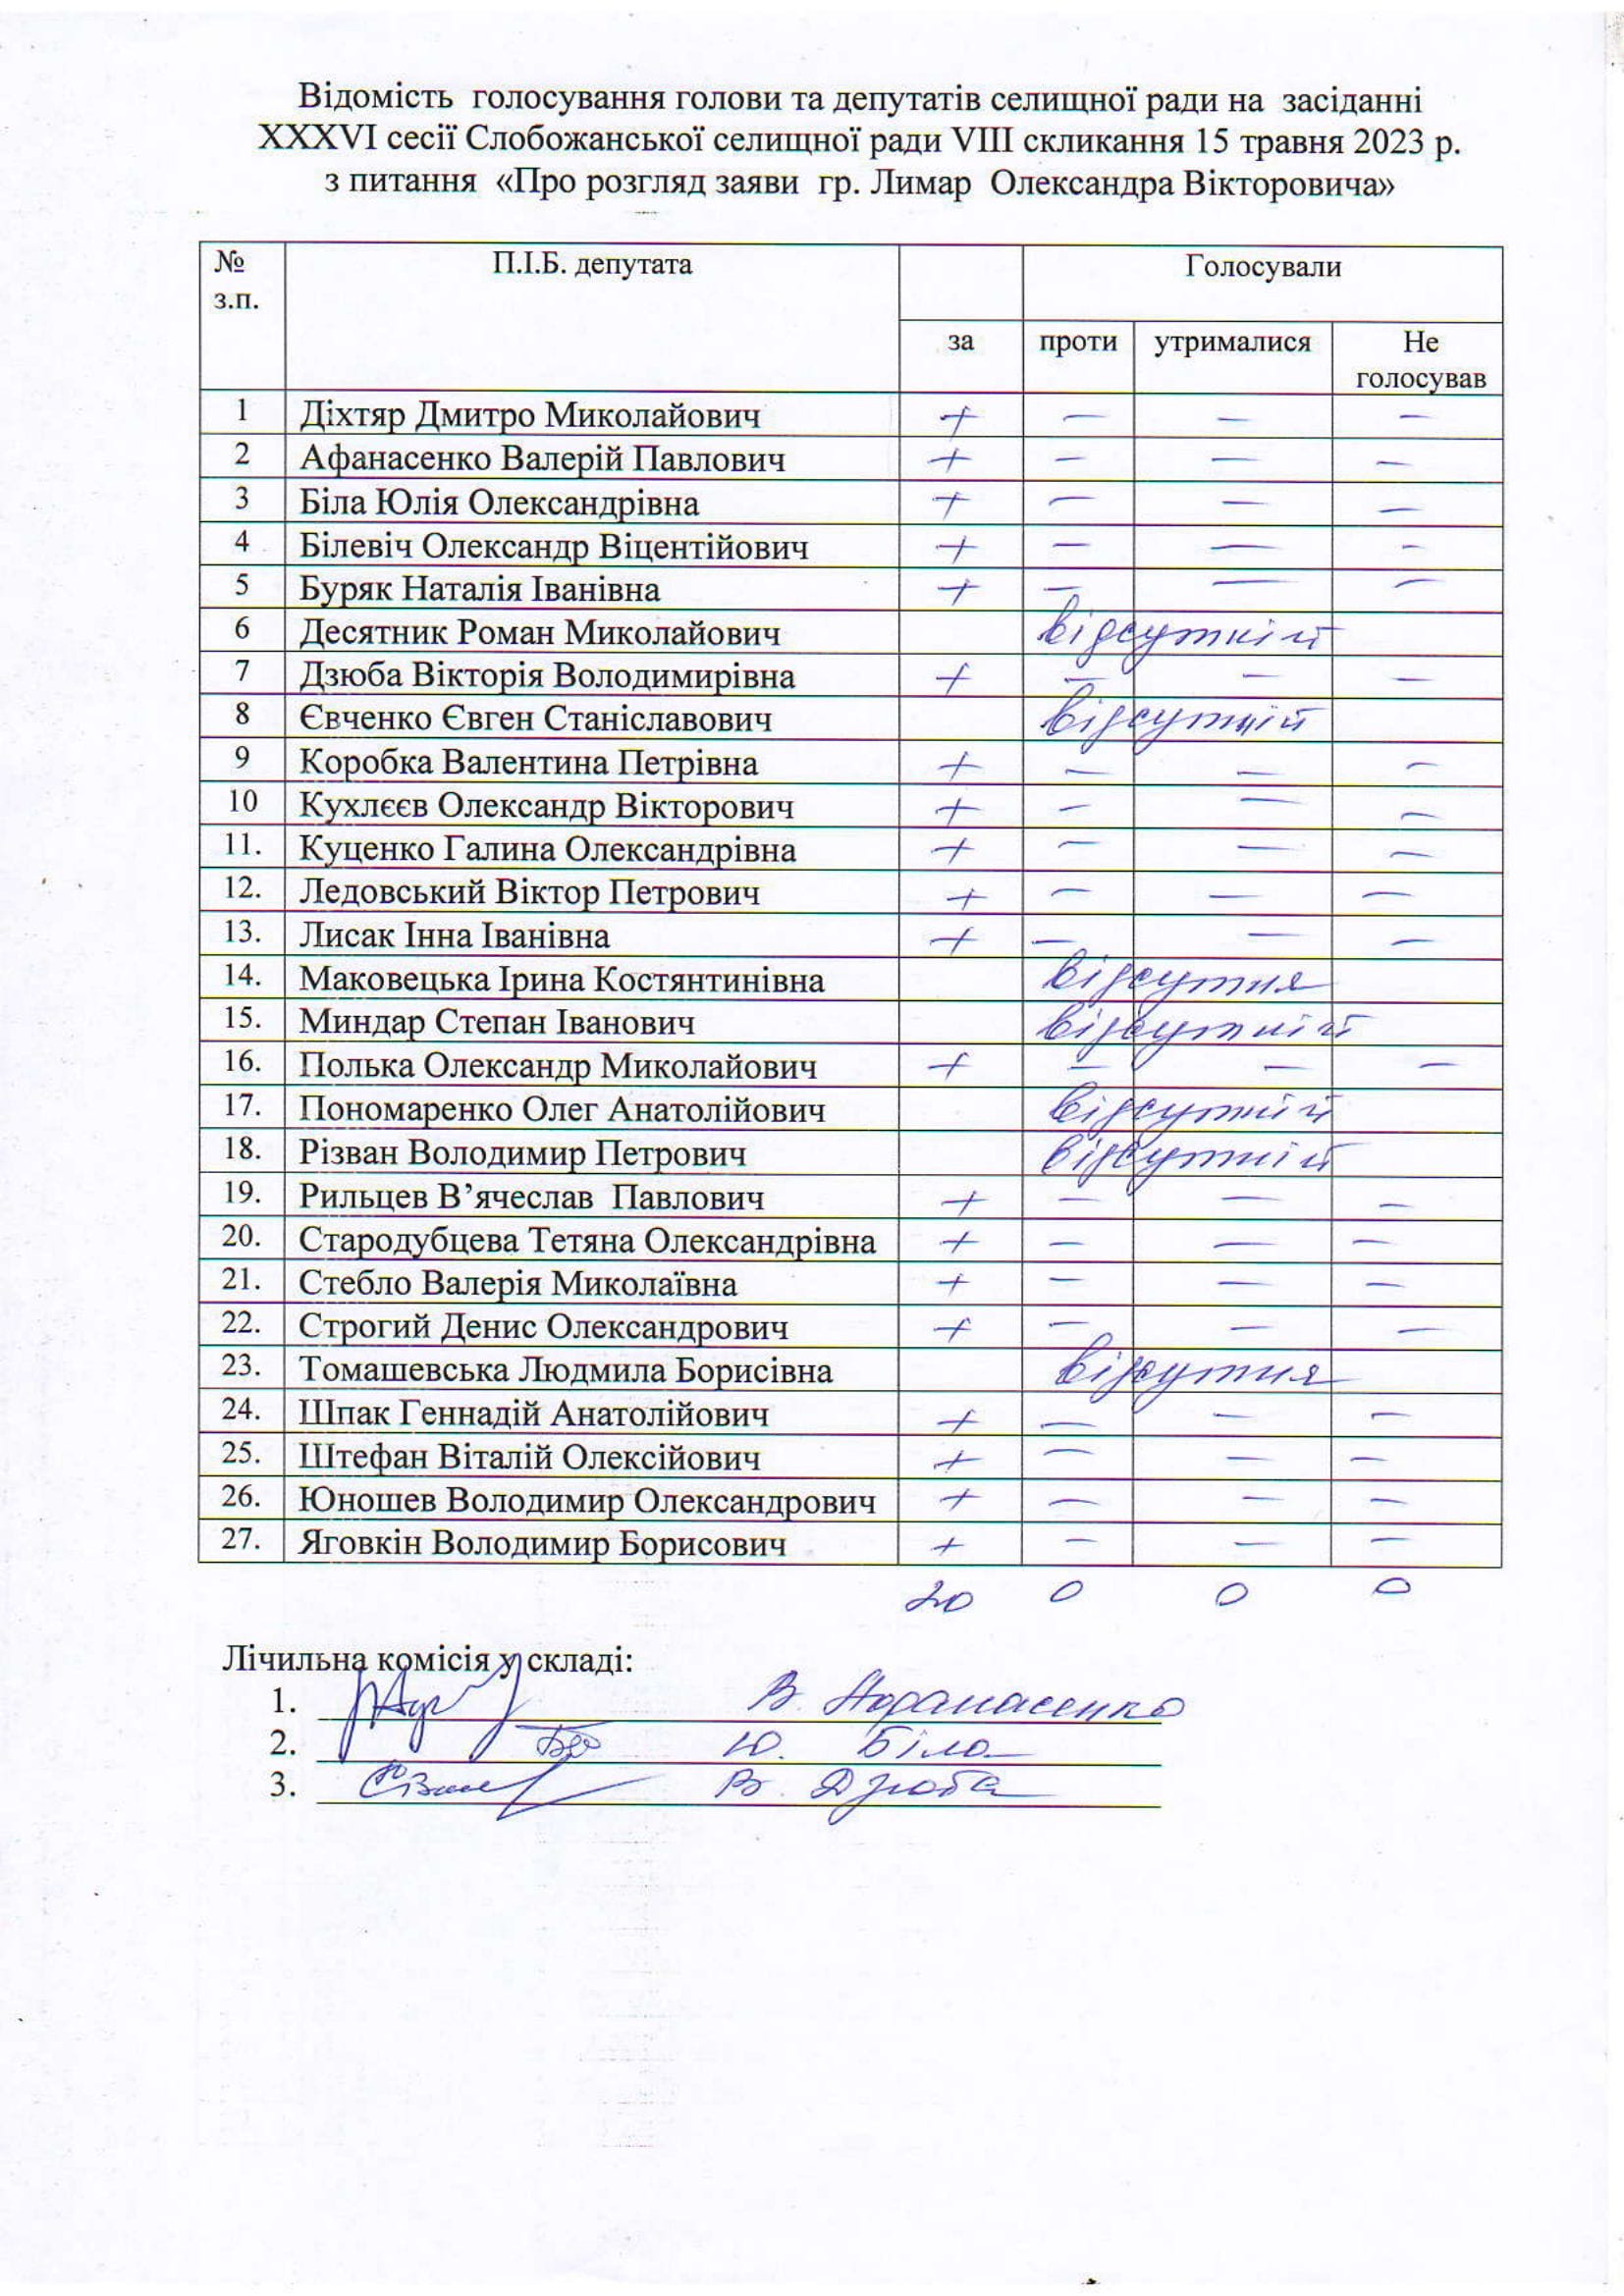 Відомість голосування голови та депутатів селищної ради на засіданні
XXXVI сесії Слобожанської селищної ради VIII скликання 15 травня 2023 р.
з питання «Про розгляд заяви гр. Лимар Олександра Вікторовича»
№ з.п. П.І.Б. депутата Голосували
за проти утрималися Не голосував
1 Діхтяр Дмитро Миколайович + — — —
2 Афанасенко Валерій Павлович + — — —
3 Біла Юлія Олександрівна + — — —
4 Білевіч Олександр Віцентійович + — — —
5 Буряк Наталія Іванівна + — — —
6 Десятник Роман Миколайович відсутній
7 Дзюба Вікторія Володимирівна + — — —
8 Євченко Євген Станіславович відсутній
9 Коробка Валентина Петрівна + — — —
10 Кухлєєв Олександр Вікторович + — — —
11. Куценко Галина Олександрівна + — — —
12. Ледовський Віктор Петрович + — — —
13. Лисак Інна Іванівна + — — —
14. Маковецька Ірина Костянтинівна відсутня
15. Миндар Степан Іванович відсутній
16. Полька Олександр Миколайович + — — —
17. Пономаренко Олег Анатолійович відсутній
18. Різван Володимир Петрович відсутній
19. Рильцев В’ячеслав Павлович + — — —
20. Стародубцева Тетяна Олександрівна + — — —
21. Стебло Валерія Миколаївна + — — —
22. Строгий Денис Олександрович + — — —
23. Томашевська Людмила Борисівна відсутня
24. Шпак Геннадій Анатолійович + — — —
25. Штефан Віталій Олексійович + — — —
26. Юношев Володимир Олександрович + — — —
27. Яговкін Володимир Борисович + — — —
20 0 0 0
Лічильна комісія у складі:
1. В. Афанасенко
2. Ю. Біла
3. В. Дзюба